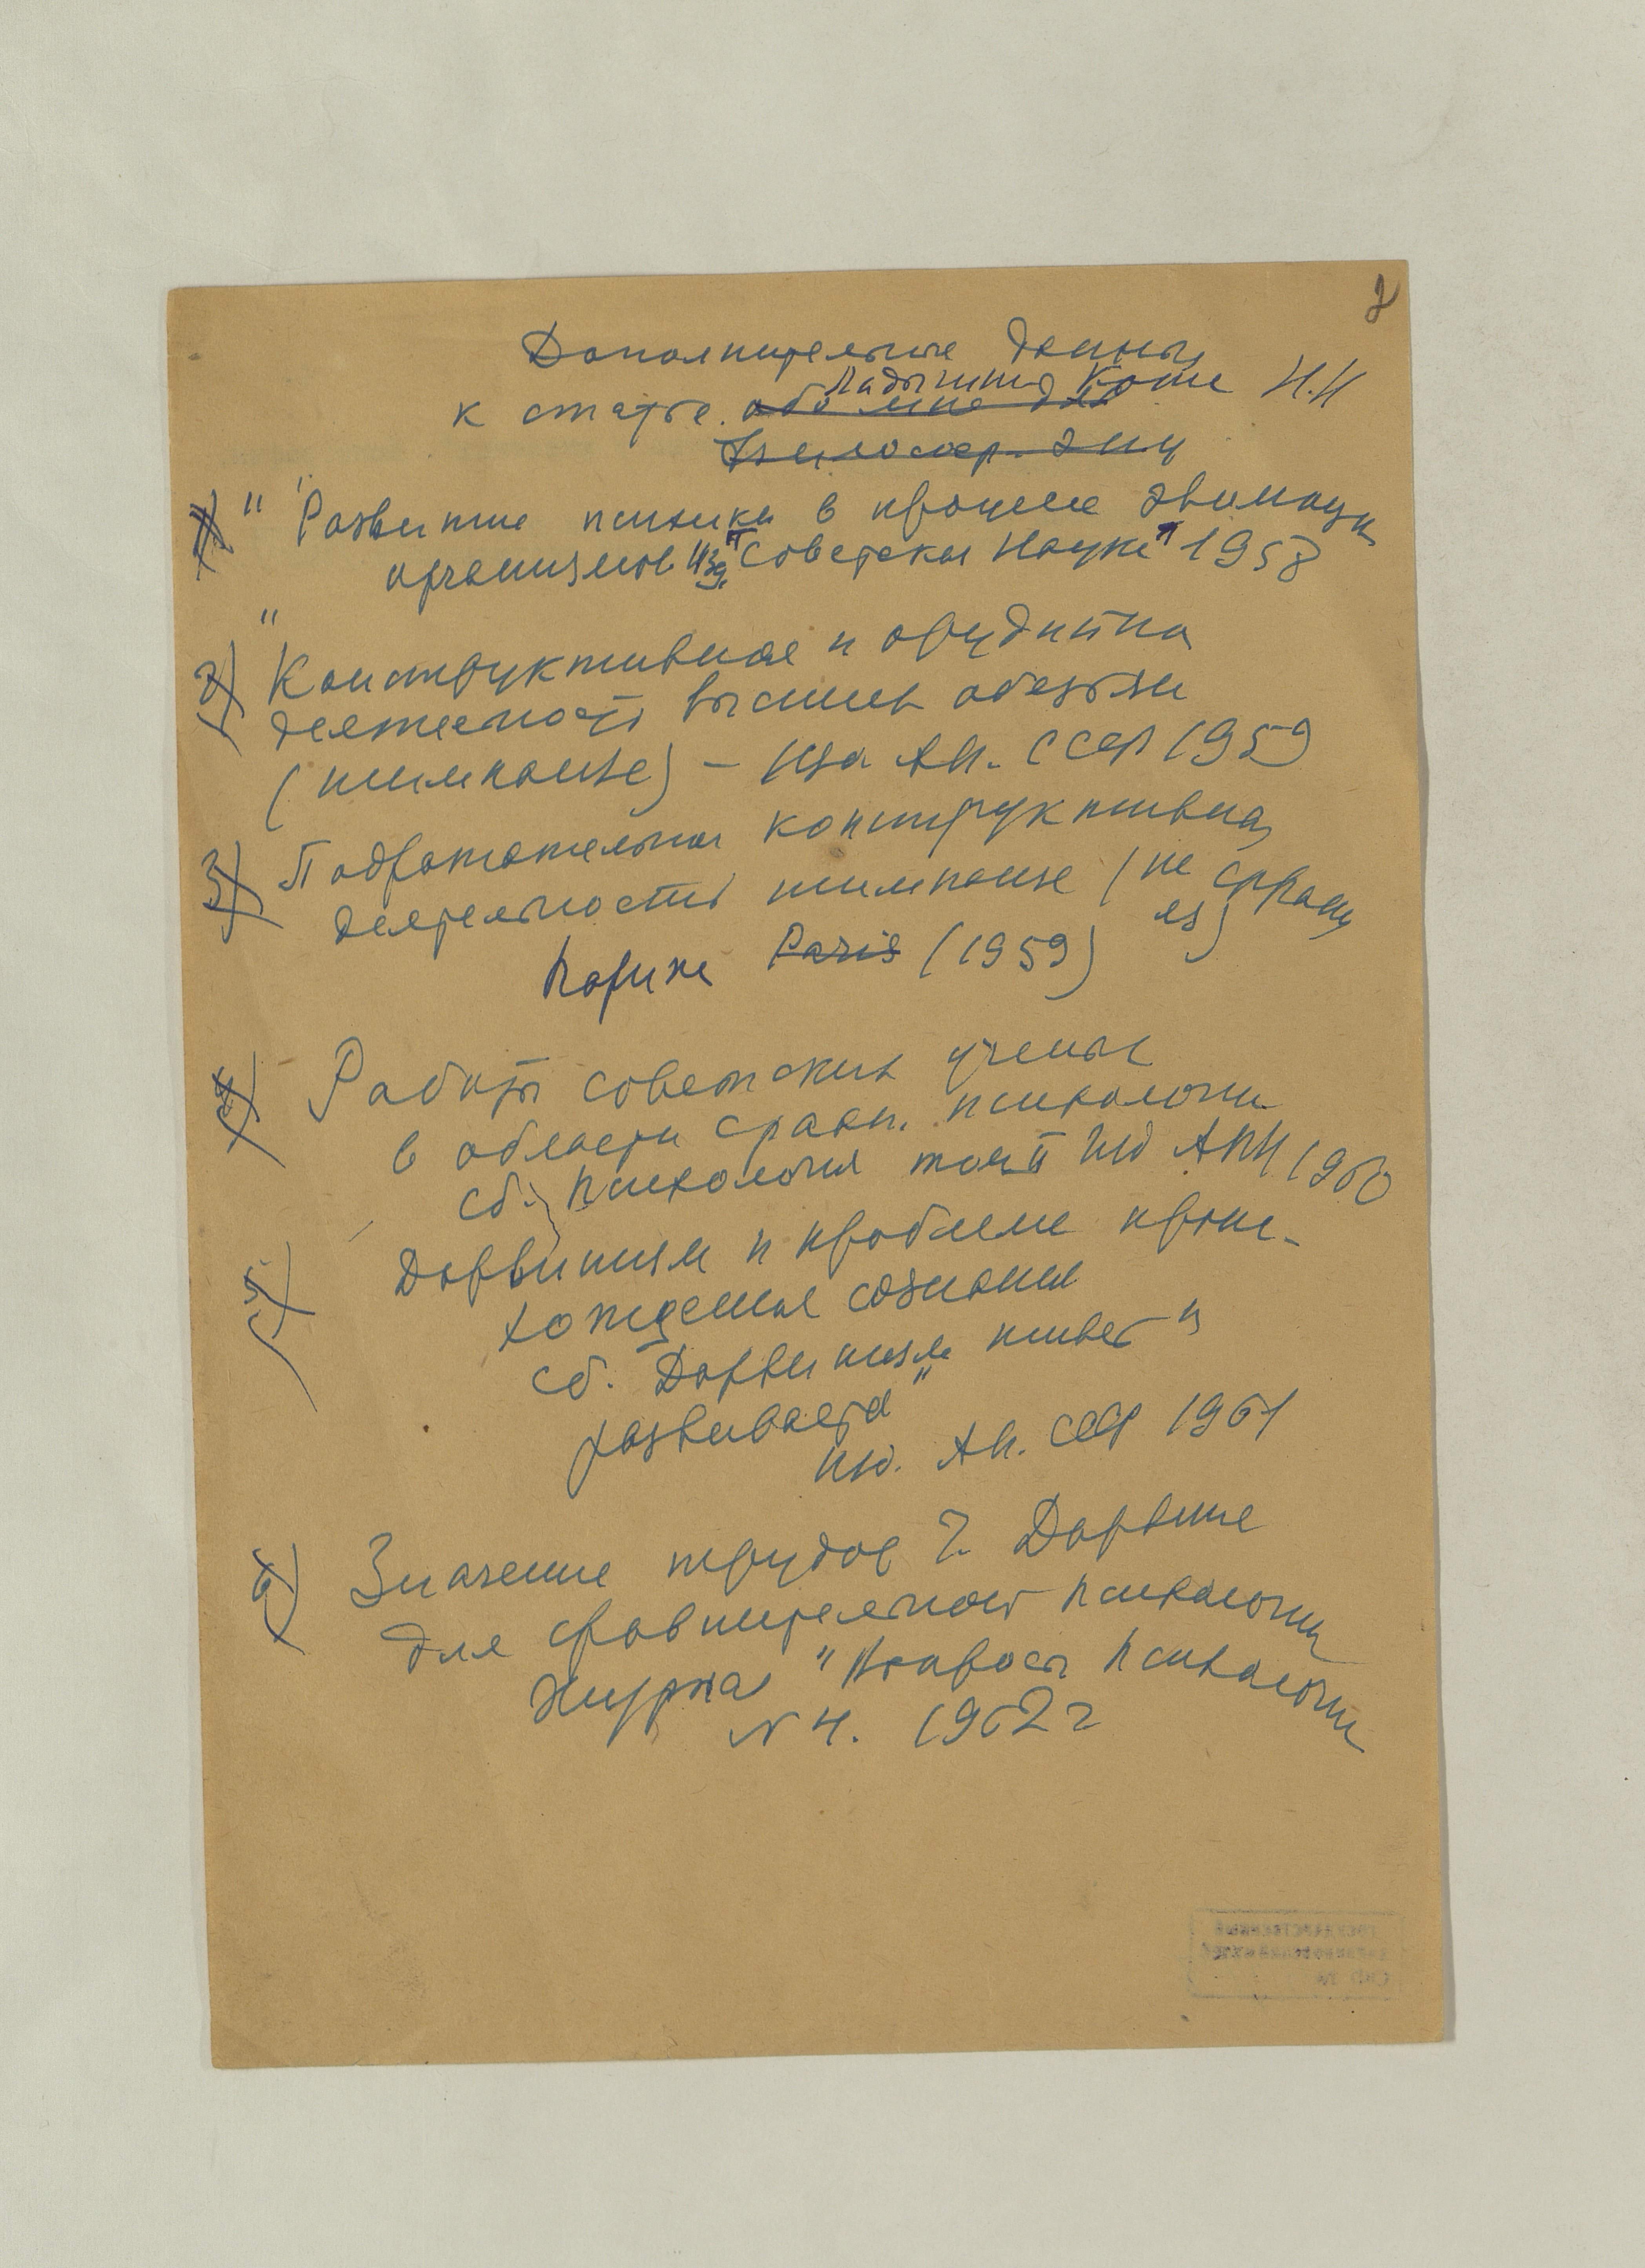 2
Дополнительные данные
Ладыгина Котс Н.Н
к статье обо мне для
Философ. энц
1) "Развитие психики в процессе эволюции
организмов Изд. "Советская Наука" 1958
2) "Конструктивная и орудийная
деятельность высших обезьян
(шимпанзе) – Изд Ак. СССР 1959
3) Подражательная конструктивная
деятельность шимпанзе (на франц
яз)
Париж Paris (1959)
4) Работы советских ученых
в области сравн. психологии
сб. Психология том II Изд АПН 1960
5) Дарвинизм и проблема проис-
хождения сознания
сб. Дарвинизм живет и
развивается"
изд. Ак. СССР 1961
6) Значение трудов Ч. Дарвина
для сравнительной психологии
Журнал "Вопросы Психологии
N 4. 1962 г